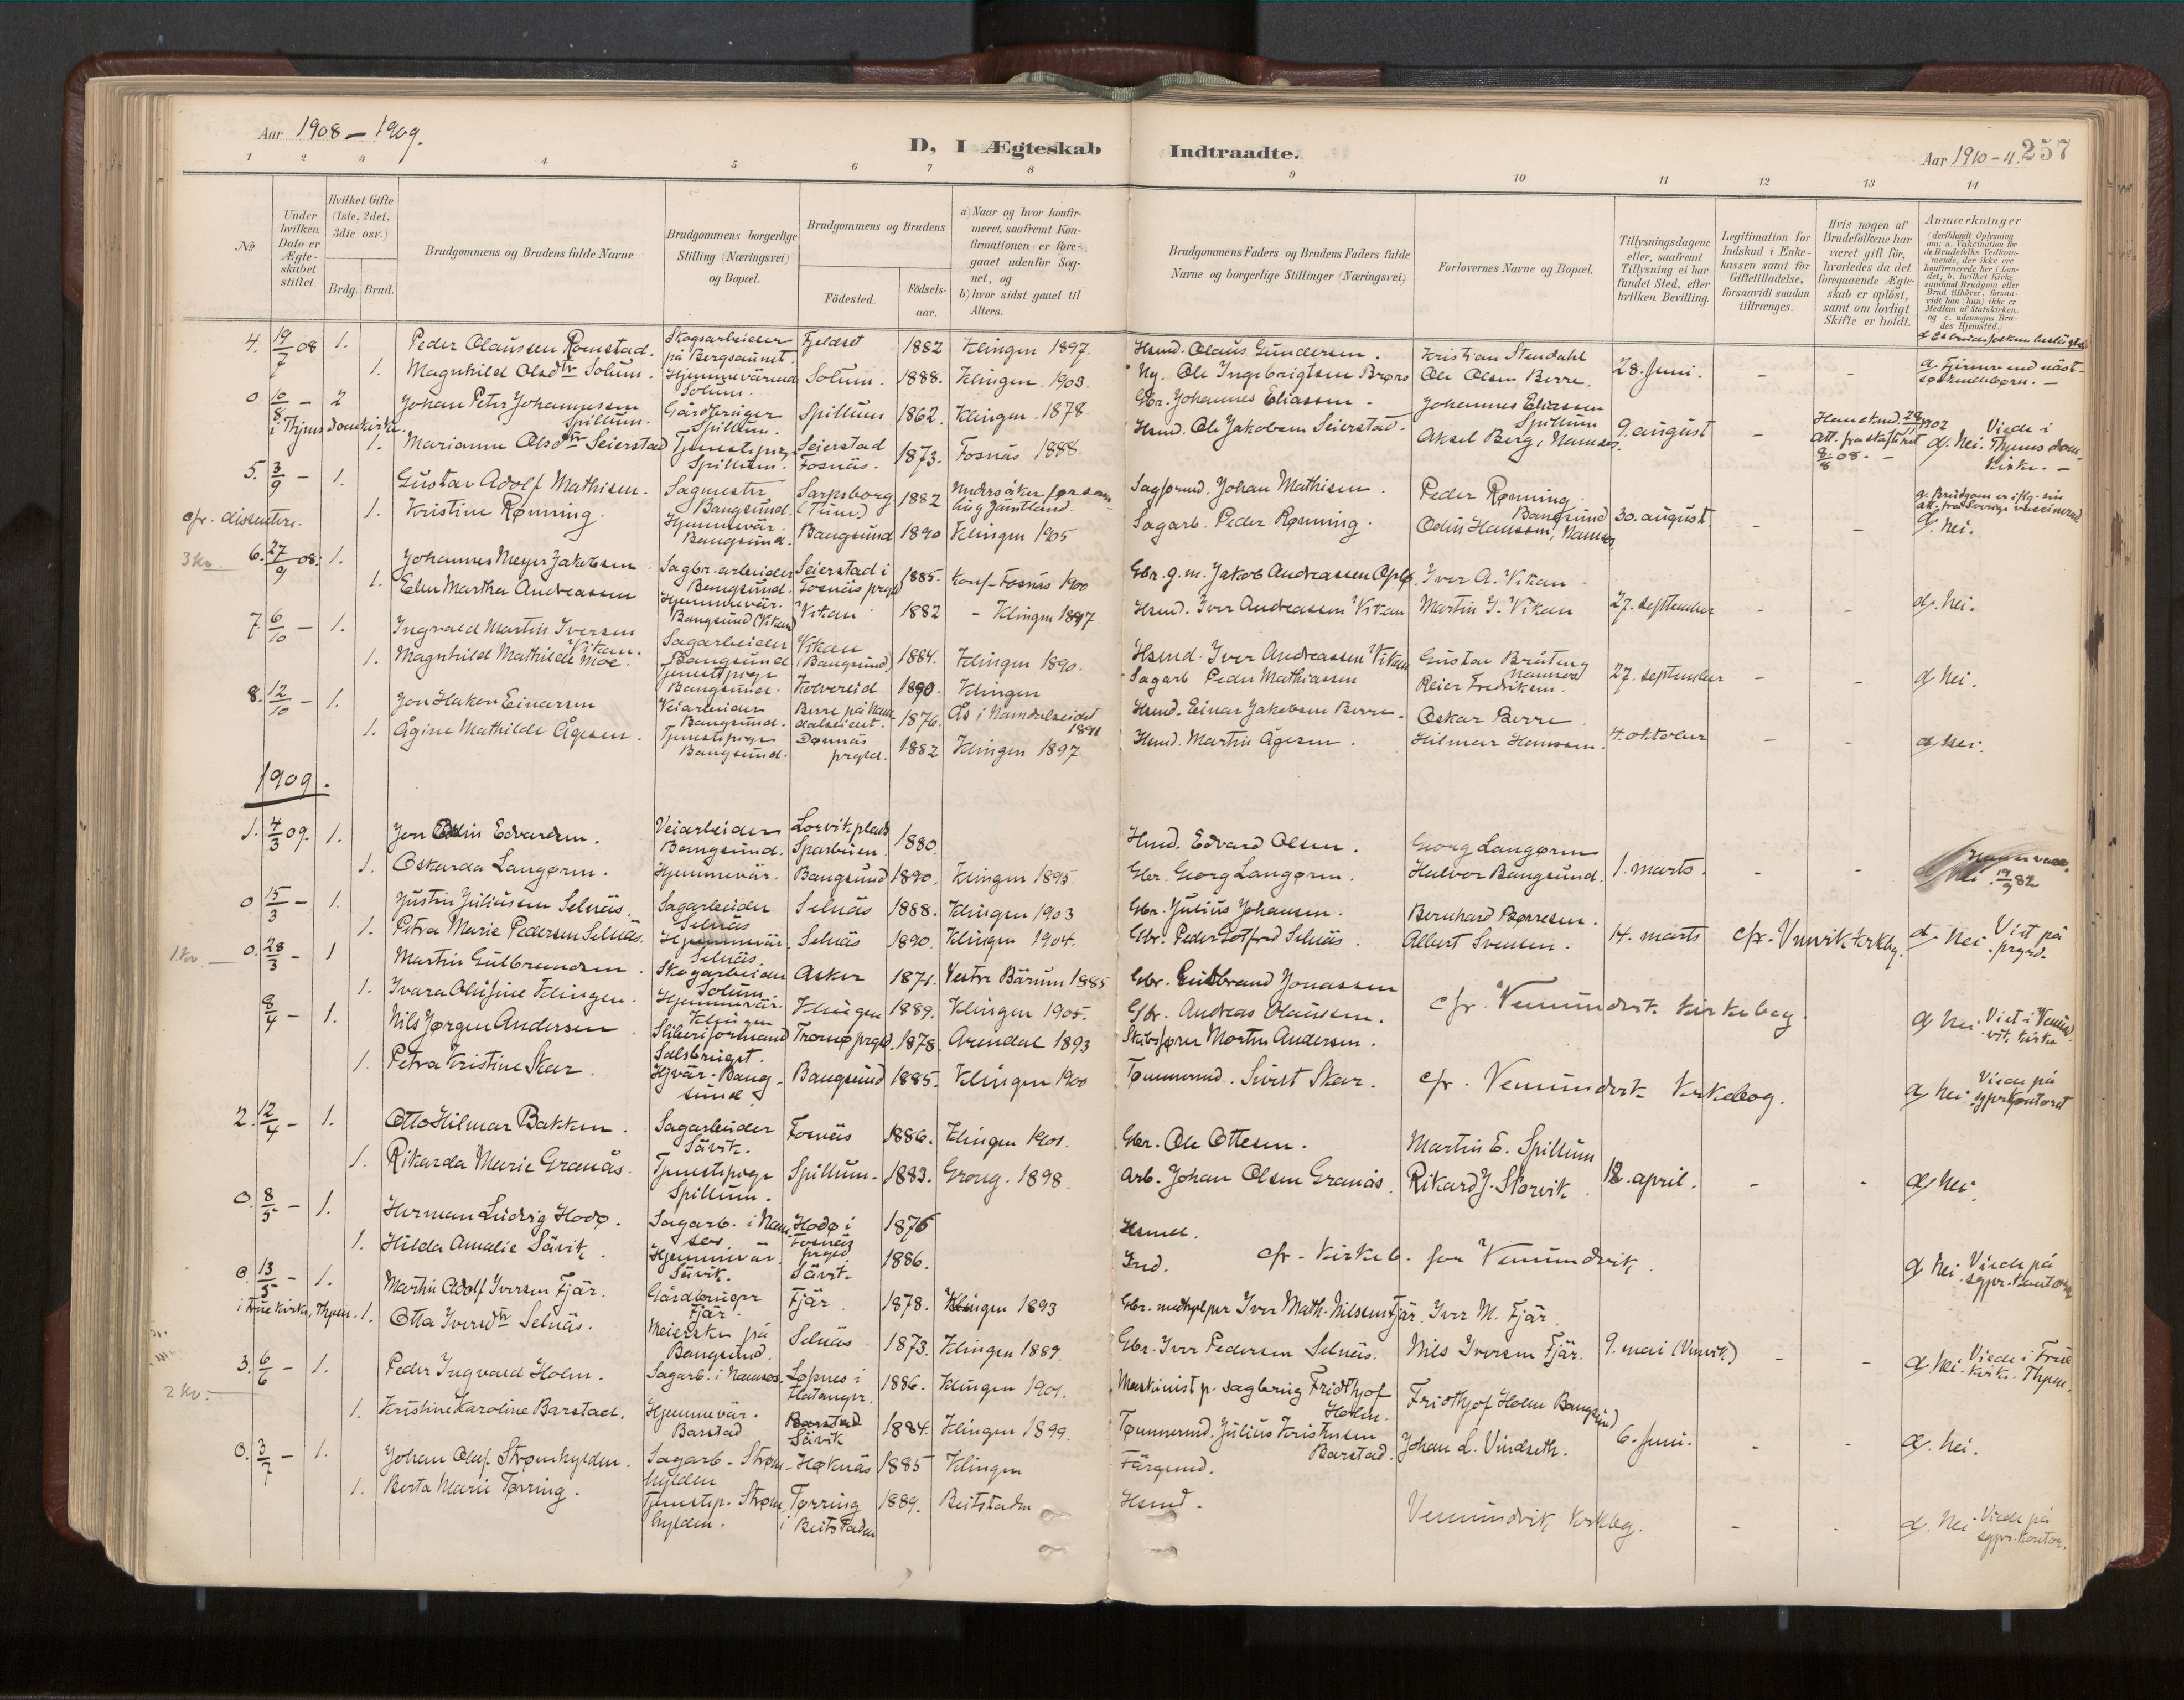 Aar 1908-1909.
D, I Ægteskab
Indtraadte.
Aar 1910-11. 257
1 2 3 4 5 6 7 8 9 10 11 12 13 14
No
Under hvilken Dato er Ægteskabet stiftet.
Hvilket Gifte (1ste, 2det, 3die osv.)
Brdg. Brud.
Brudgommens og Brudens fulde Navne
Brudgommens borgerlige Stilling (Næringsvei) og Bopæl.
Brudgommens og Brudens
Fødested.
Fødselsaar.
a) Naar og hvor konfirmeret, saafremt Konfirmationen er foregaaet udenfor Sognet, og
b) hvor sidst gaaet til Alters.
Brudgommens Faders og Brudens Faders fulde Navne og borgerlige Stillinger (Næringsvei)
Forlovernes Navne og Bopæl.
Tillysningsdagene eller, saafremt Tillysning ei har fundet Sted, efter hvilken Bevilling.
Legitimation for Indskud i Enkekassen samt for Giftetilladelse, forsaavidt saadan tiltrænges.
Hvis nogen af Brudefolkene har været gift før, hvorledes da det foregaaende Ægteskab er opløst, samt om lovligt Skifte er holdt.
Anmærkninger
4. 19/7 08 1. Peder Olaussen Romstad. Skogsarbeider på Bergsaunet. Fjeldset 1882 Klingen 1897. Hsmd. Olaus Gundersen. Kristian Stendahl
1. Magnhild Olsdtr Solum. Hjemmeværende Solum. Solum. 1888. Klingen. 1903. Ny. Ole Ingebrigtsen Brørs Ole Olsen Berre. 28. Juni. - -
0 10/8 - 2 Johan Peter Johannessen Spillum. Gårdbruger Spillum. Spillum 1862. Klingen. 1878. Gbr. Johannes Eliassen - Johannes Eliassen Spillum
i Thjems domkirke. 1. Marianne Olsdtr Seierstad Tjenestepige Spillum. Seierstad Fosnäs. 1873. Fosnäs 1888. Hsmd. Ole Jakobsen Seierstad. Aksel Berg, Namsos. 9. august - d. Nei. Viede i Thjems domkirke. -
5. 3/9 - 1. Gustav Adolf Mathisen. Sagmester Bangsund. Sarpsborg (Tune) 1882 Sagformd. Johan Mathisen. Peder Rønning. Bangsund
cfr. dissentere. 1. Kristine Rønning. Hjemmevär. Bangsund. Bangsund 1890 Klingen 1905 Sagarb. Peder Rønning. Odin Hanssen, Namsos 30. august - - d. Nei.
3 Kr. 6. 27/9 08. 1. Johannes Meyer Jakobsen Sagbr. arbeider Bangsund. Seierstad i Fosnäs prgld 1885. Konf. Fosnäs 1900 Gbr. g.m. Jakob Andreassen Iver A. Vikan
1. Elen Martha Andreassen Hjemmevär. Bangsund (Vikan) Vikan 1882 - Klingen 1897 Hsmd. Iver Andreassen Vikan Martin J. Vikan 27. september - - d. Nei.
7. 6/10 - 1. Ingvald Martin Iversen Vikan. Sagarbeider Bangsund Vikan (Bangsund) 1884. Klingen 1890. Hsmd. Iver Andreassen Vikan Gustav Bråteng Namsos
1. Magnhild Mathilde Moe. Tjenestepige Bangsund. Kolvereid 1890. Klingen Sagarb Peder Mathiassen Reier Fredriksen. 27. september - - d. Nei.
8. 12/10 - 1. Jon Hakon Einarsen Veiarbeider Bangsund. Berre på Namdalseidet. 1876. Ås i Namdalseidet 1891 Hsmd. Einar Jakobsen Berre. Oskar Berre
1. Ågine Mathilde Ågesen. Tjenestepige Bangsund. Dønnäs prgld. 1882 Klingen 1897 Hsmd. Martin Ågesen. Hilmar Hanssen. 4. oktober - - d. Nei.
1909.
1. 4/3 09. 1. Jon Odin Edvardsen. Veiarbeider Bangsund. Lorvik plads Sparbuen. 1880. Hsmd. Edvard Olsen. Georg Langørn
1. Oskarda Langørn. Hjemmevär. Bangsund 1890. Klingen 1895. Gbr. Georg Langørn. Halvor Bangsund. 1. marts. - - d. Nei.
0 15/3 - 1. Justin Juliussen Selnäs. Sagarbeider Selnäs Selnäs 1888. Klingen 1903 Gbr. Julius Johansen. Bernhard Børresen.
1. Petra Marie Pedersen Selnäs. Hjemmevär. Selnäs. Selnäs 1890. Klingen 1904. Gbr. Peder Selnäs. Albert Svensen. 14. marts cfr. Vmvik kirkbg. d. Nei. Viet på prgrd.
1 Kr. - 0. 28/3 - 1 Martin Gulbrandsen. Skogarbeider Solum. Asker 1871. Vestre Bärum 1885. Gbr. Guldbrand Jonassen
1. Ivara Olufine Klingen. Hjemmevär. Klingen Klingen 1889. Klingen 1905. Gbr. Andreas Olaussen. cfr. Vemundvik kirkebog. d. Nei. Viet i Vemundvik kirke
8/4 - 1. Nils Jørgen Andersen Sliberiformand Salsbruget. Tromø prgld. 1878. Arendal 1893 Skibsfører Morten Andersen.
1. Petra Kristine Skar. Hjvär. Bangsund. Bangsund 1885. Klingen 1900 Tømmermd. Sivert Skar. cfr. Vemundvik kirkebog. d. Nei. Viede på sgprkontoret
2. 12/4 - 1. Otto Hilmar Bakken. Sagarbeider Sävik. Fosnäs 1886. Klingen 1901. Gbr. Ole Ottesen. Martin E. Spillum
1. Rikarda Marie Granås. Tjenestepige Spillum. Spillum. 1883. Grong. 1898. Arb. Johan Olsen Granås. Rikard J. Storvik 12. april. - - d. Nei.
0. 8/5 - 1. Herman Ludvig Hodø. Sagarb. i Namsos Hodø i Fosnäs prgld 1876 Hsmd.
1. Hilda Amalie Sävik. Hjemmevär. Sävik. Sävik 1886. Ind. cfr. kirkeb. for Vemundvik. d. Nei. Viede på sgpr. kontor
0. 13/5 - 1. Martin Adolf Iversen Fjär. Gårdbruger Fjär. Fjär. 1878. Klingen 1893 Gbr. Iver Math. Nilssen Fjär. Iver M. Fjär.
i Frue kirke, Thjem. 1. Otta Iversdtr Selnäs. Meierske på Bangsund. Selnäs 1873. Klingen 1889. Gbr. Iver Pedersen Selnäs. Nils Iversen Fjär. 9. mai (Vmvik.) - - d. Nei. Viede i Frue kirke. Thjem.
2 Kr. 3. 6/6 - 1. Peder Ingvald Holm. Sagarb. i Namsos. Løpnes i Flatanger. 1886. Klingen 1901. Maskinist p. sagbrug Fridthjof Holm. Fridthjof Holm Bangsund
1. Kristine Karoline Barstad. Hjemmevär. Barstad Barstad Sävik 1884. Klingen 1899. Tømmermd. Julius Kristensen Barstad. Johan L. Vindseth. 6. Juni. - - d. Nei.
0. 3/7 - 1. Johan Oluf Strømhylden. Sagarb. Strømhylden Høknäs 1885 Klingen Färgemd.
1. Berta Marie Tørring. Tjenestep. Strømhylden. Tørring i Beitstaden 1889. Beitstaden Hsmd. Vemundvik kirkbg. - - d. Nei. Viede på sgpr. kontor.